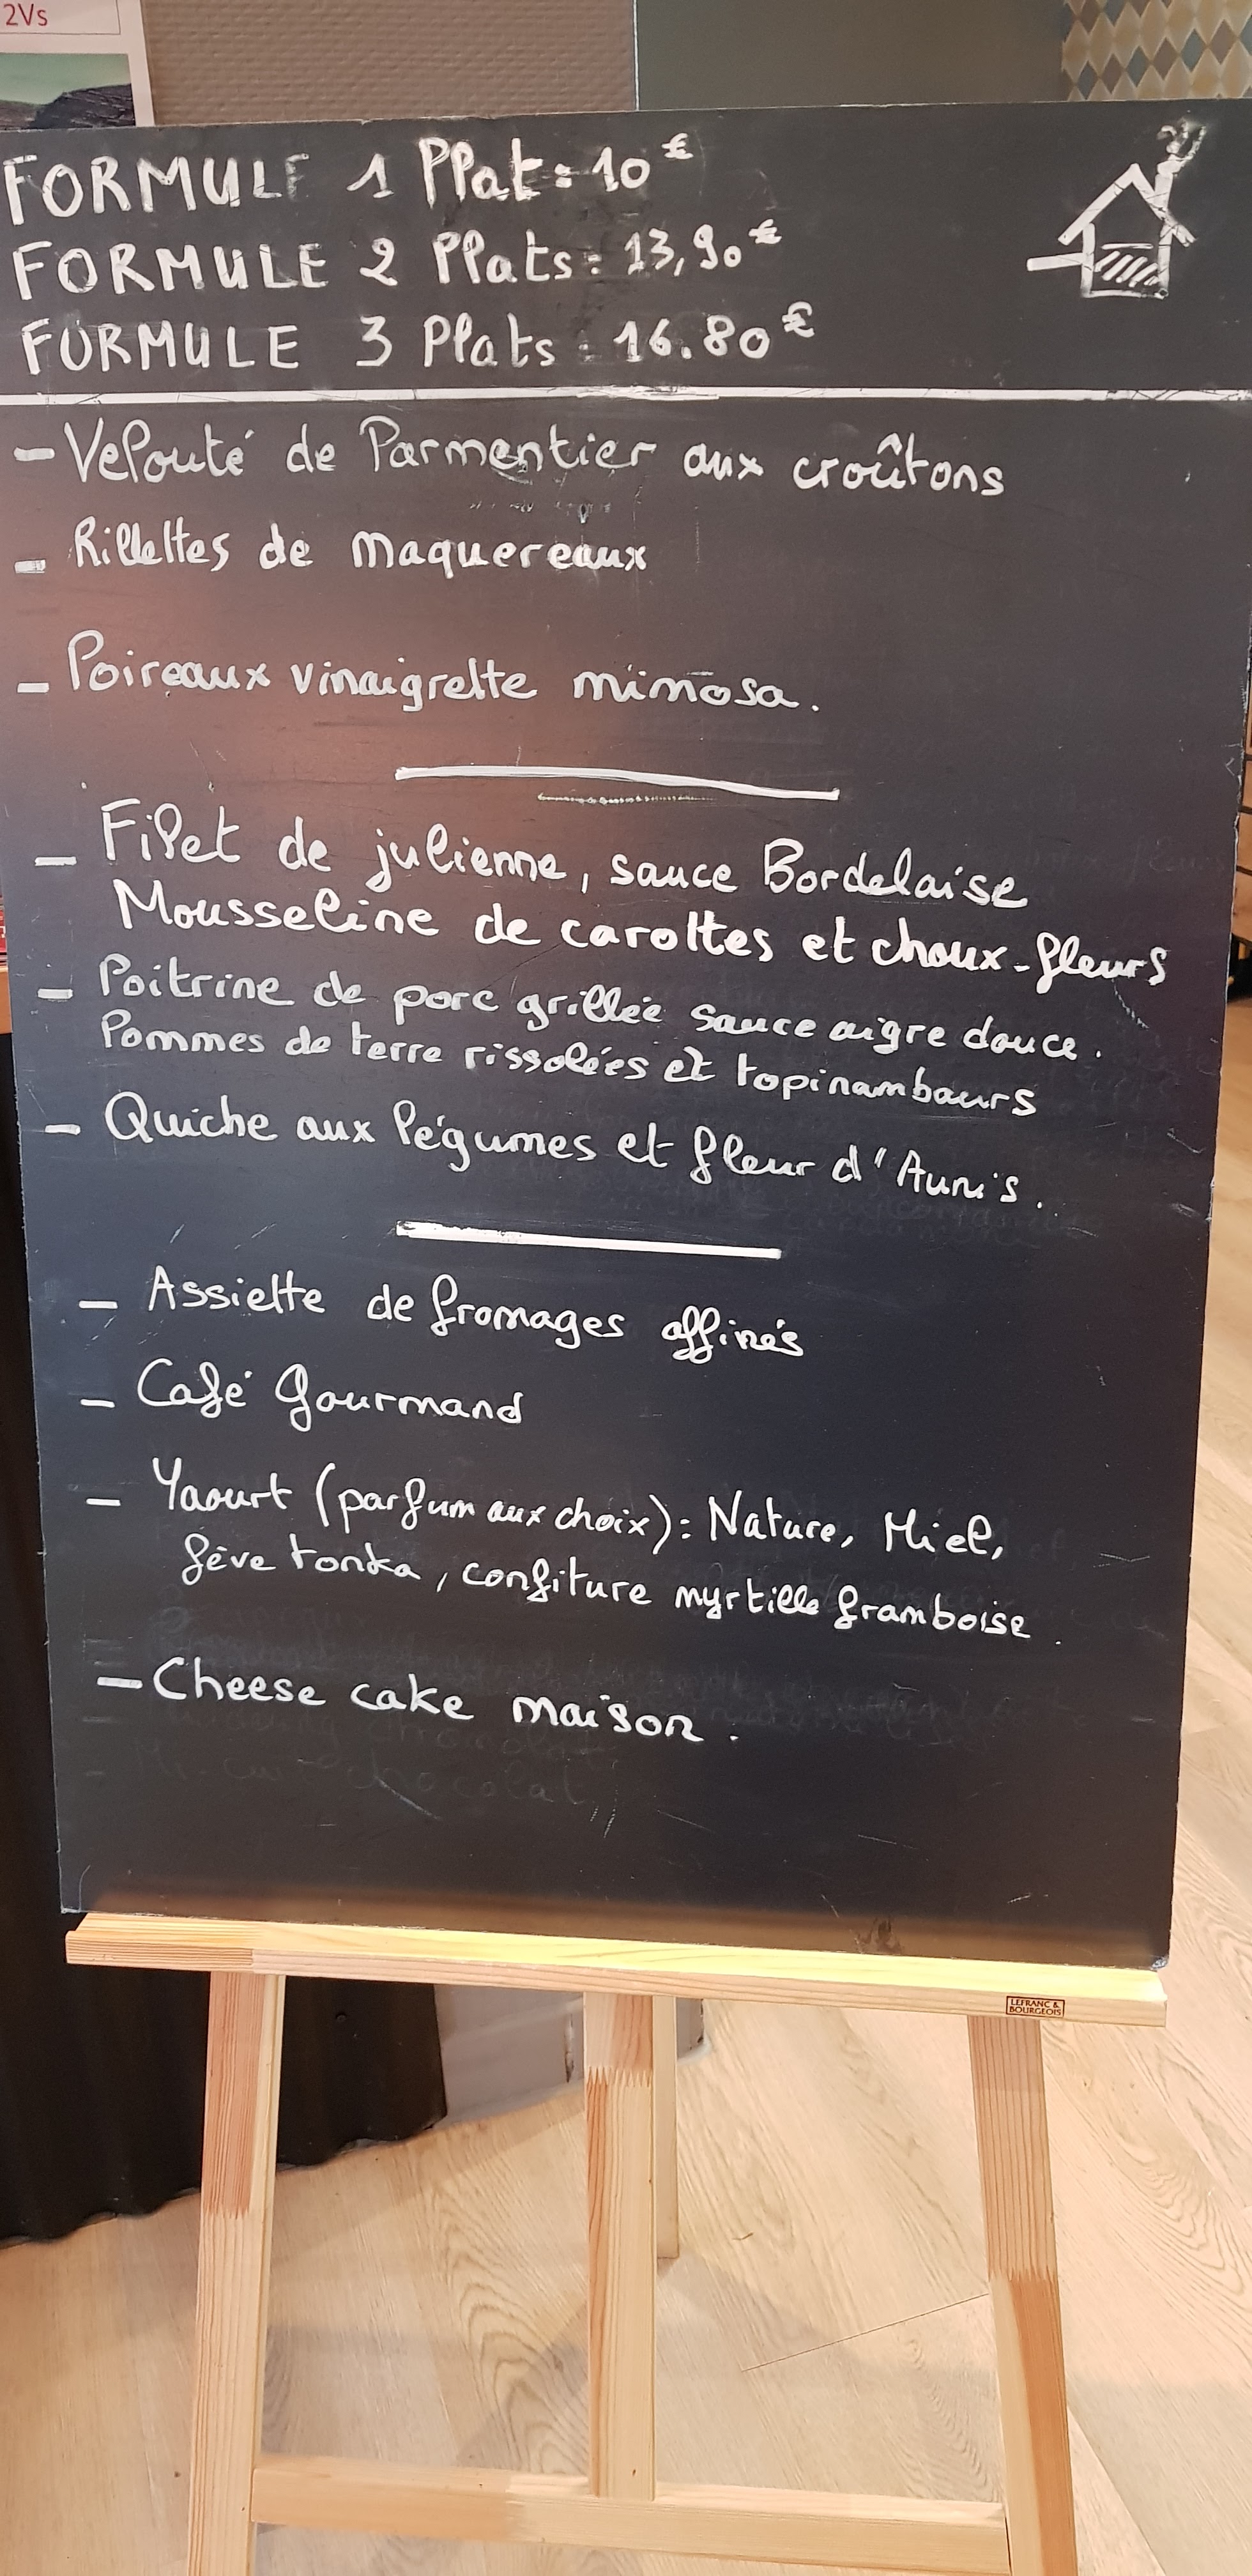 2Vs
FORMULE 1 Plat : 10€
FORMULE 2 Plats : 13,90€
FORMULE 3 Plats : 16.80€
- Velouté de Parmentier aux croûtons
- Rillettes de Maquereaux
- Poireaux vinaigrette mimosa.
- Filet de julienne, sauce Bordelaise
Mousseline de carottes et choux-fleurs
- Poitrine de porc grillée sauce aigre douce.
Pommes de terre rissolées et topinambours
- Quiche aux légumes et fleur d'Aunis.
- Assiette de fromages affinés
- Café Gourmand
- Yaourt (parfum aux choix) : Nature, Miel,
fève tonka, confiture myrtille framboise.
- Cheese cake maison.
chocolat
LEFRANC &
BOURGEOIS